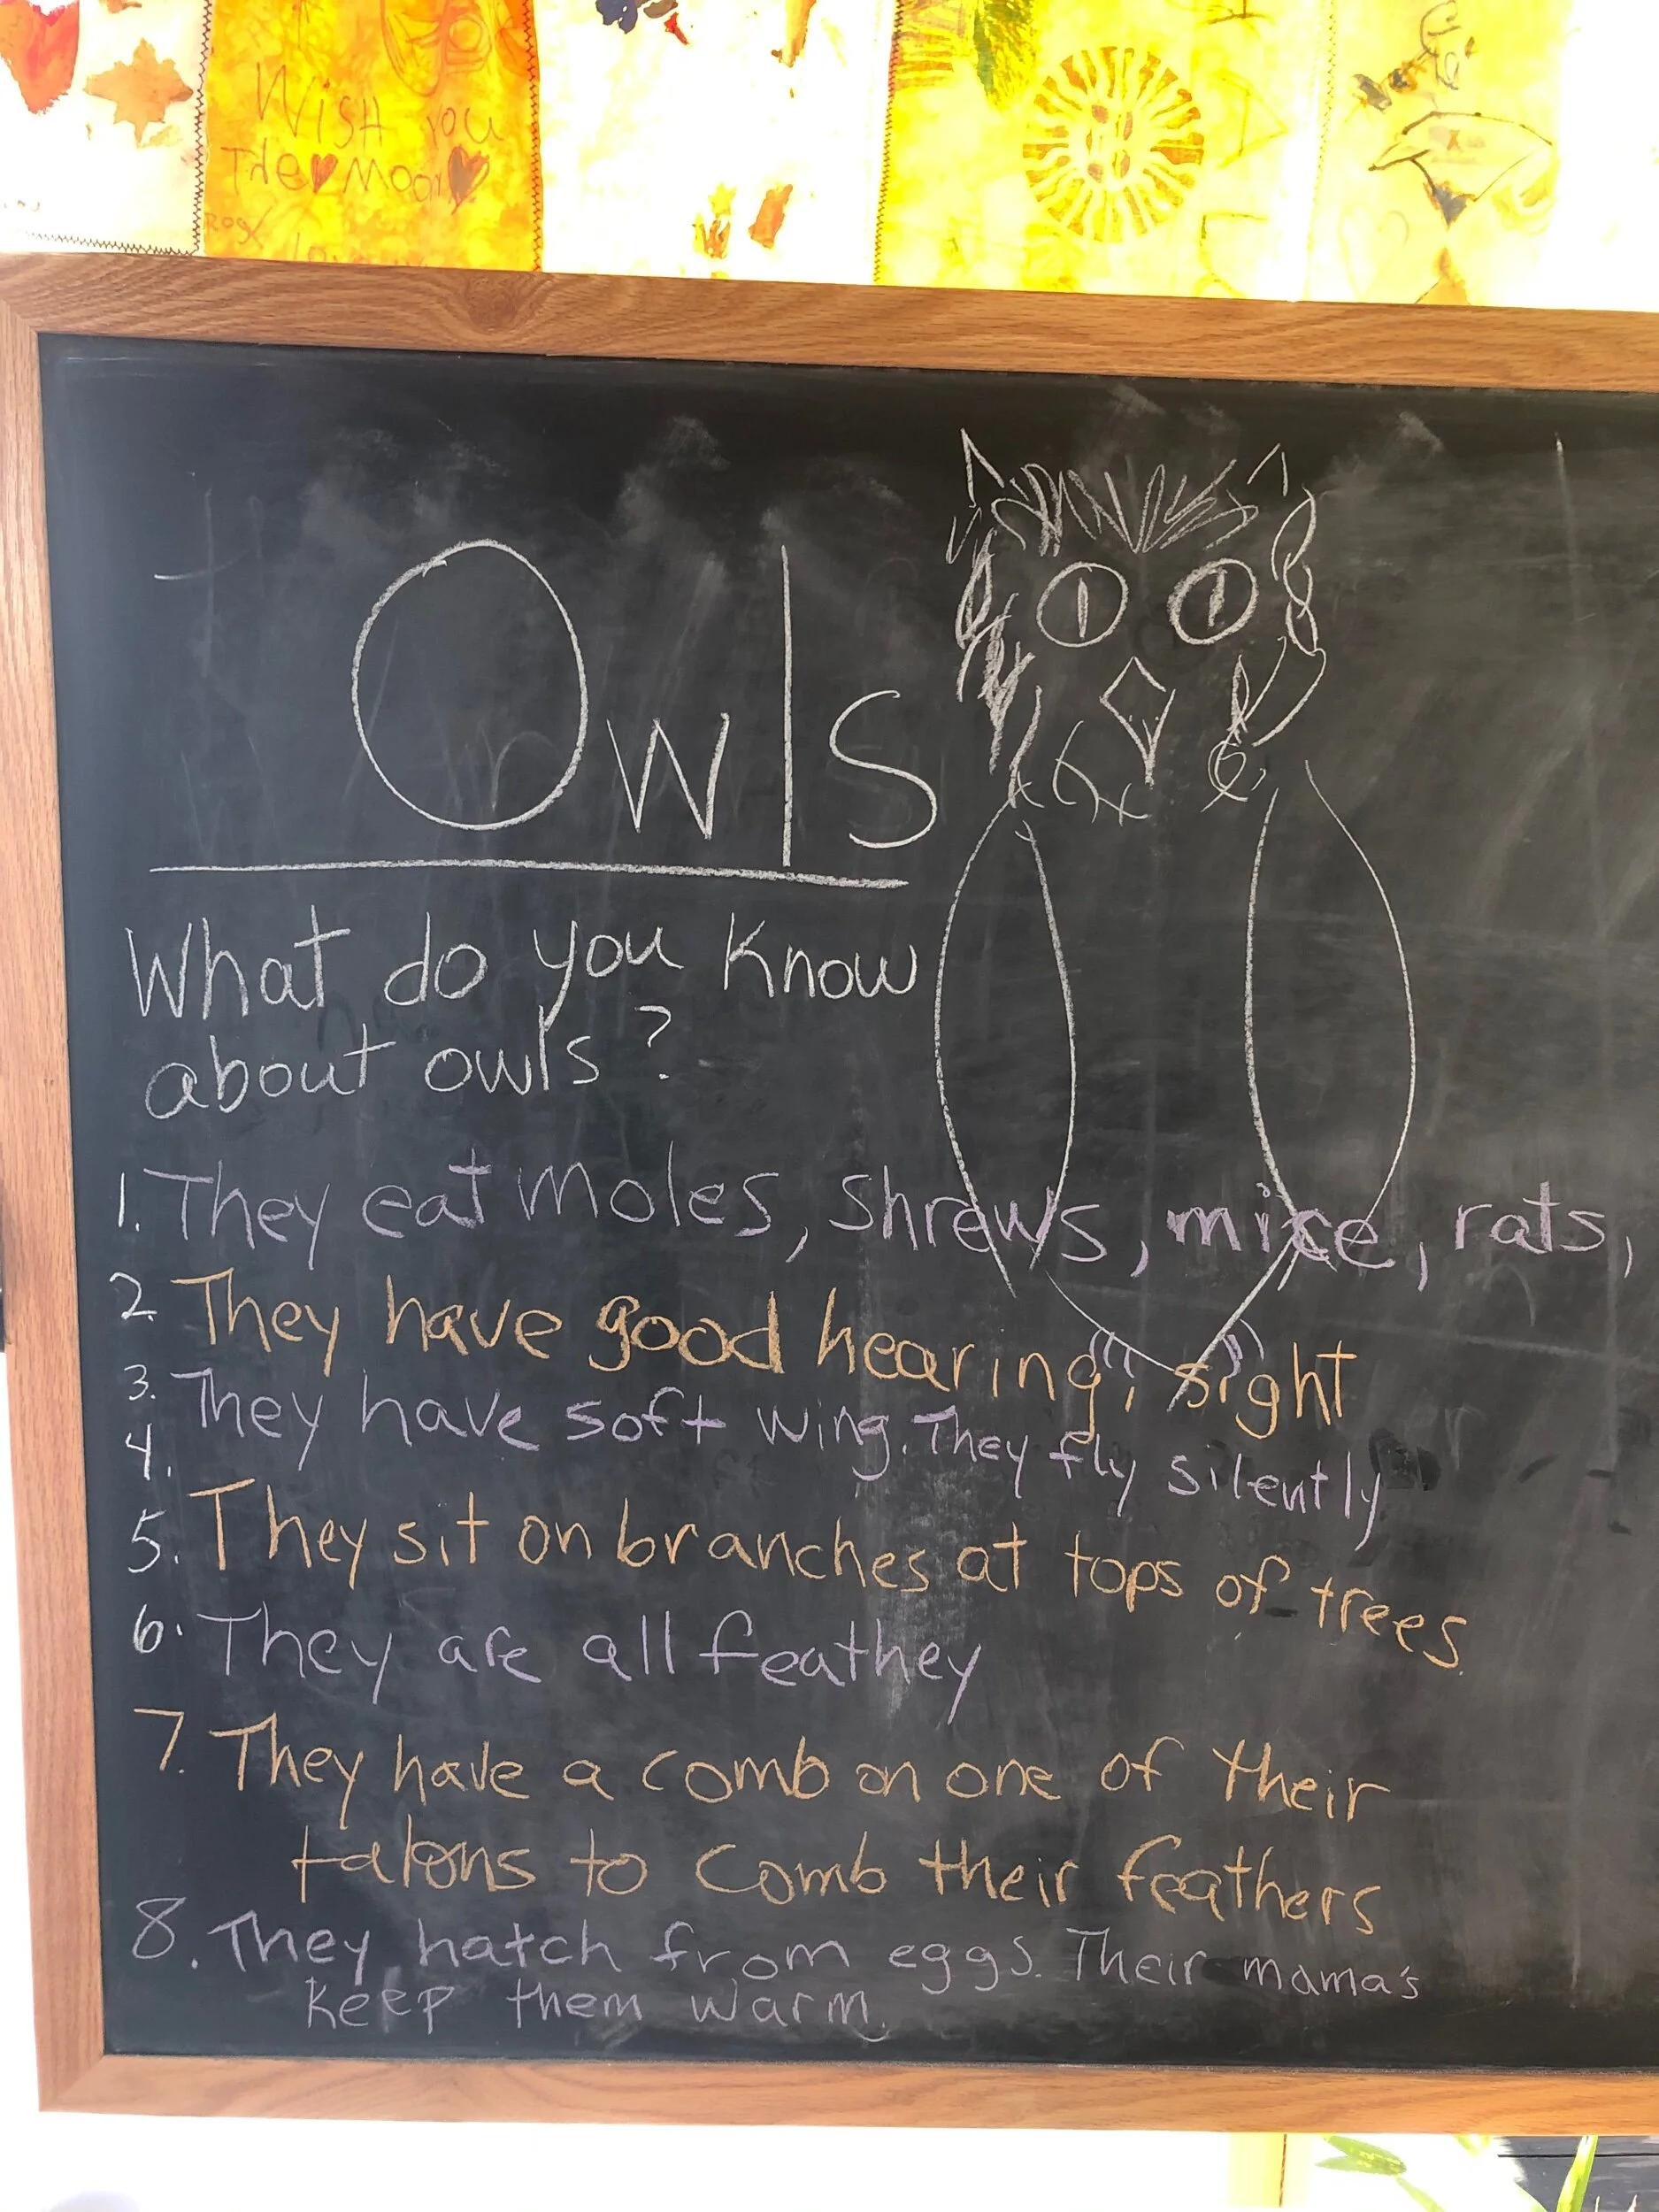 Wish you
The Moon
Owls
What do you know
about owls?
1. They eat moles, shrews, mice, rats,
2. They have good hearing, sight
3. They have soft wing. They fly silently
4.
5. They sit on branches at tops of trees.
6. They are all feathey
7. They have a comb on one of their
talons to comb their feathers
8. They hatch from eggs. Their mama's
keep them warm.